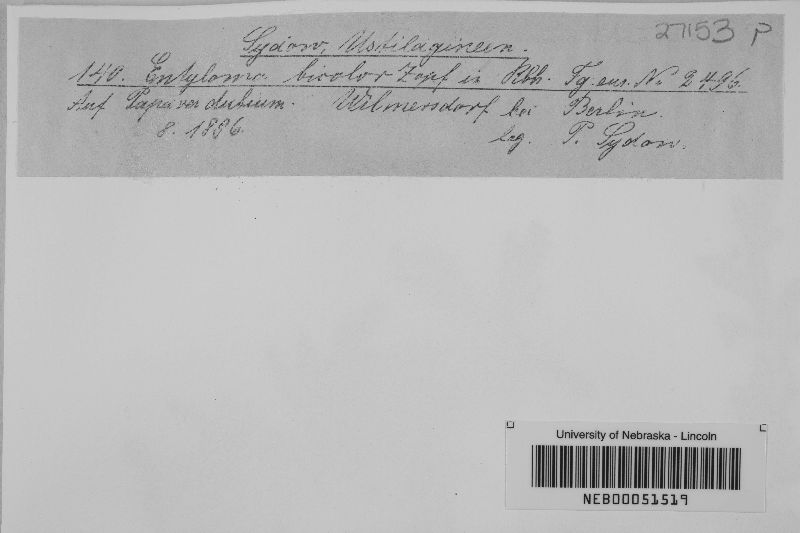 27153 P
Sydow, Ustilagineen.
140. Entyloma bicolor Zopf in Rbh. Fg. eur. No 2496.
Auf Papaver dubium. Wilmersdorf bei Berlin.
8. 1896.
leg. P. Sydow.
University of Nebraska - Lincoln
NEB00051519